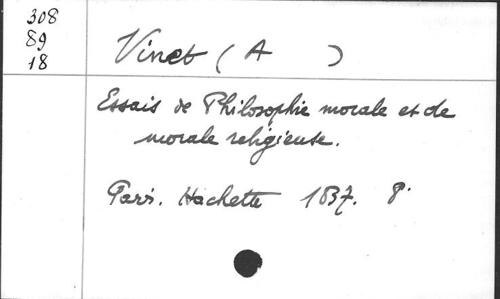 308
89
18
Vinet (A )
Essais de Philosophie morale et de
morale religieuse.
Paris. Hachette 1837. 8°